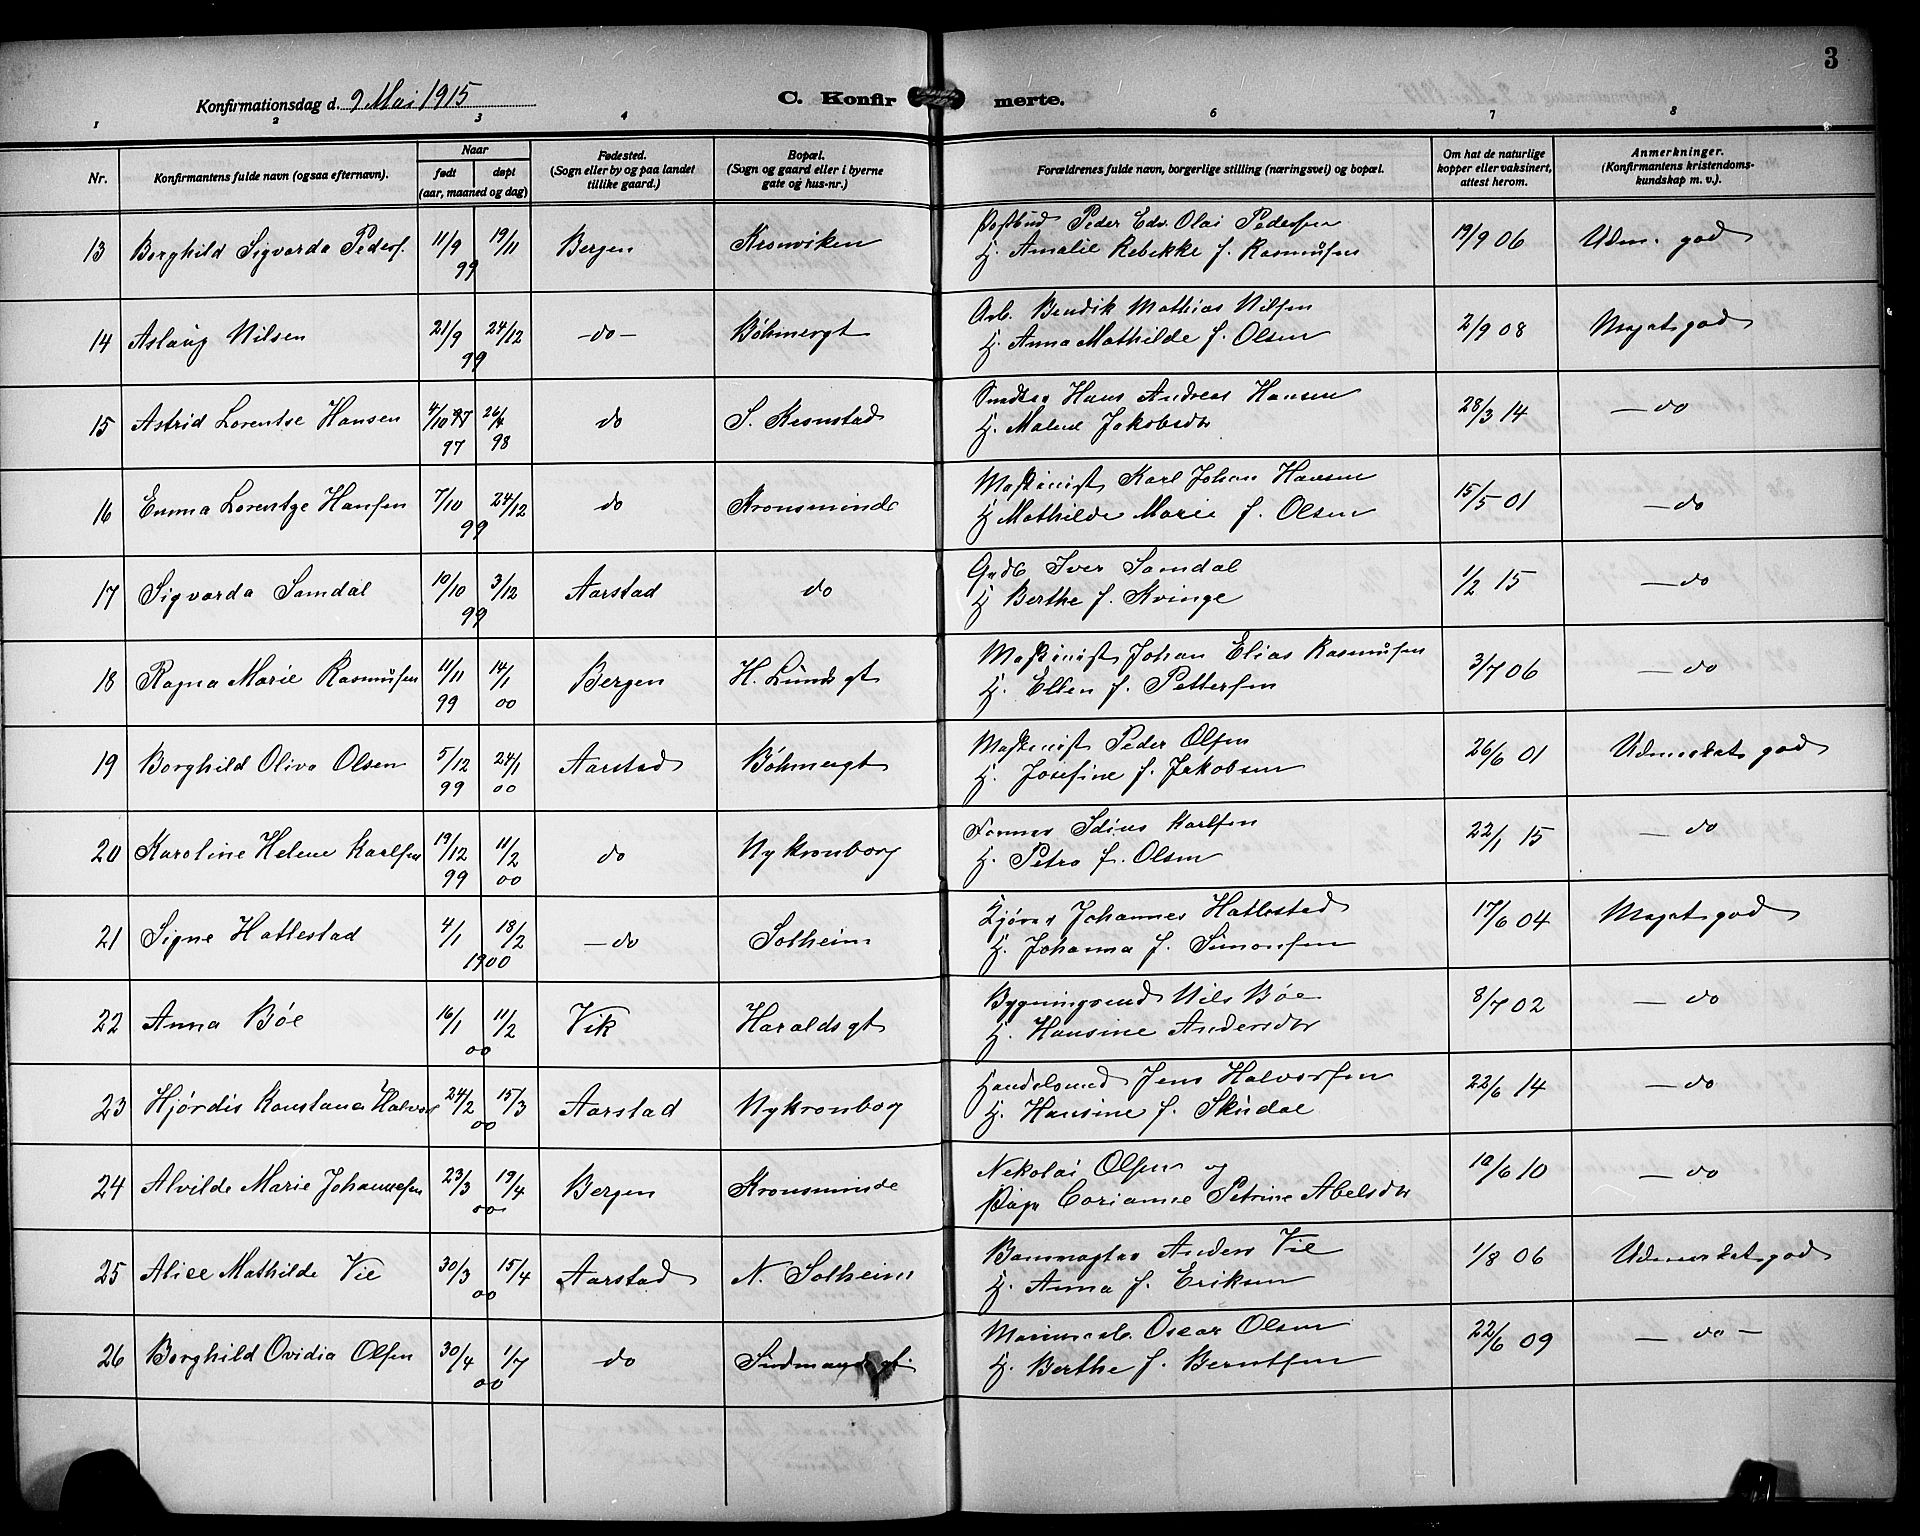 3
Konfirmationsdag d. 9 Mai 1915
C. Konfir merte.
1 2 3 4 6 7 8
Nr.
Konfirmantens fulde navn (ogsaa efternavn).
Naar
født
døpt
(aar, maaned og dag)
Fødested.
(Sogn eller by og paa landet
tillike gaard.)
Bopæl.
(Sogn og gaard eller i byerne
gate og hus-nr.)
Forældrenes fulde navn, borgerlige stilling (næringsvei) og bopæl.
Om hat de naturlige
kopper eller vaksinert,
attest herom.
Anmerkninger.
(Konfirmantens kristendoms-
kundskap m. v.).
13 Borghild Sigvarda Peders. 11/9 19/11 99 Bergen Kronviken
Postbud Peder Edv. Olai Pedersen
H. Amalie Rebekke f. Rasmusen
19/9 06 Udm. god
14 Aslaug Nilsen 21/9 24/12 99 -do- Bøhmergt
Arb. Bendik Mathias Nilsen
H. Anna Mathilde f. Olsen
2/9 08 Meget god
15 Astrid Lorentse Hansen 4/10 97 26/4 98 do S. Kronstad
Hans Andreas Hansen
H. Malene Jakobsdtr
28/3 14 - do
16 Emma Lorentze Hansen 7/10 24/12 99 do Kronsminde
Maskinist Karl Johan Hansen
H Mathilde Marie f. Olsen
15/5 01 - do
17 Sigvarda Samdal 10/10 3/12 99 Aarstad do
Grdb Iver Samdal
H Berthe f. Kvinge
1/2 15 - do
18 Ragna Marie Rasmusen 11/11 99 14/1 00 Bergen H. Lundsgt
Maskinist Johan Elias Rasmusen
H. Ellen f. Pettersen
3/7 06 - do
19 Borghild Oliva Olsen 5/12 99 24/1 00 Aarstad Bøhmergt
Maskinist Peder Olsen
H. Josefine f. Jakobsen
26/6 01 Udmerket god
20 Karoline Helene Karlsen 19/12 99 11/2 00 do Ny kronborg
Former Idius Karlsen
H. Petra f. Olsen
22/1 15 - do
21 Signe Hatlestad 4/1 18/2 1900 - do Solheim
Kjører Johannes Hatlestad
H. Johanna f. Simonsen
17/6 04 Meget god
22 Anna Bøe 16/1 11/2 00 Vik Haraldsgt
Bygningssnd Nils Bøe
H. Hansine Andersdtr
8/7 02 - do
23 Hjørdis Konstance Halvors 24/2 15/3 00 Aarstad Nykronborg
Handelsmd Jens Halvorsen
H. Hansine f. Skudal
22/6 14 - do
24 Alvilde Marie Johannesen 23/3 19/4 00 Bergen Kronsminde
Nekolai Olsen og
Pige Corianne Petrine Abelsdtr
10/6 10 - do
25 Alice Mathilde Vie 30/3 15/4 00 Aarstad N. Solheim
Banevogter Anders Vie
H. Anna f. Eriksen
1/8 06 Udmerket god
26 Borghild Ovidia Olsen 30/4 1/7 00 do
Marinearb. Oscar Olsen
H. Berthe f. Berntsen
22/6 09 - do -